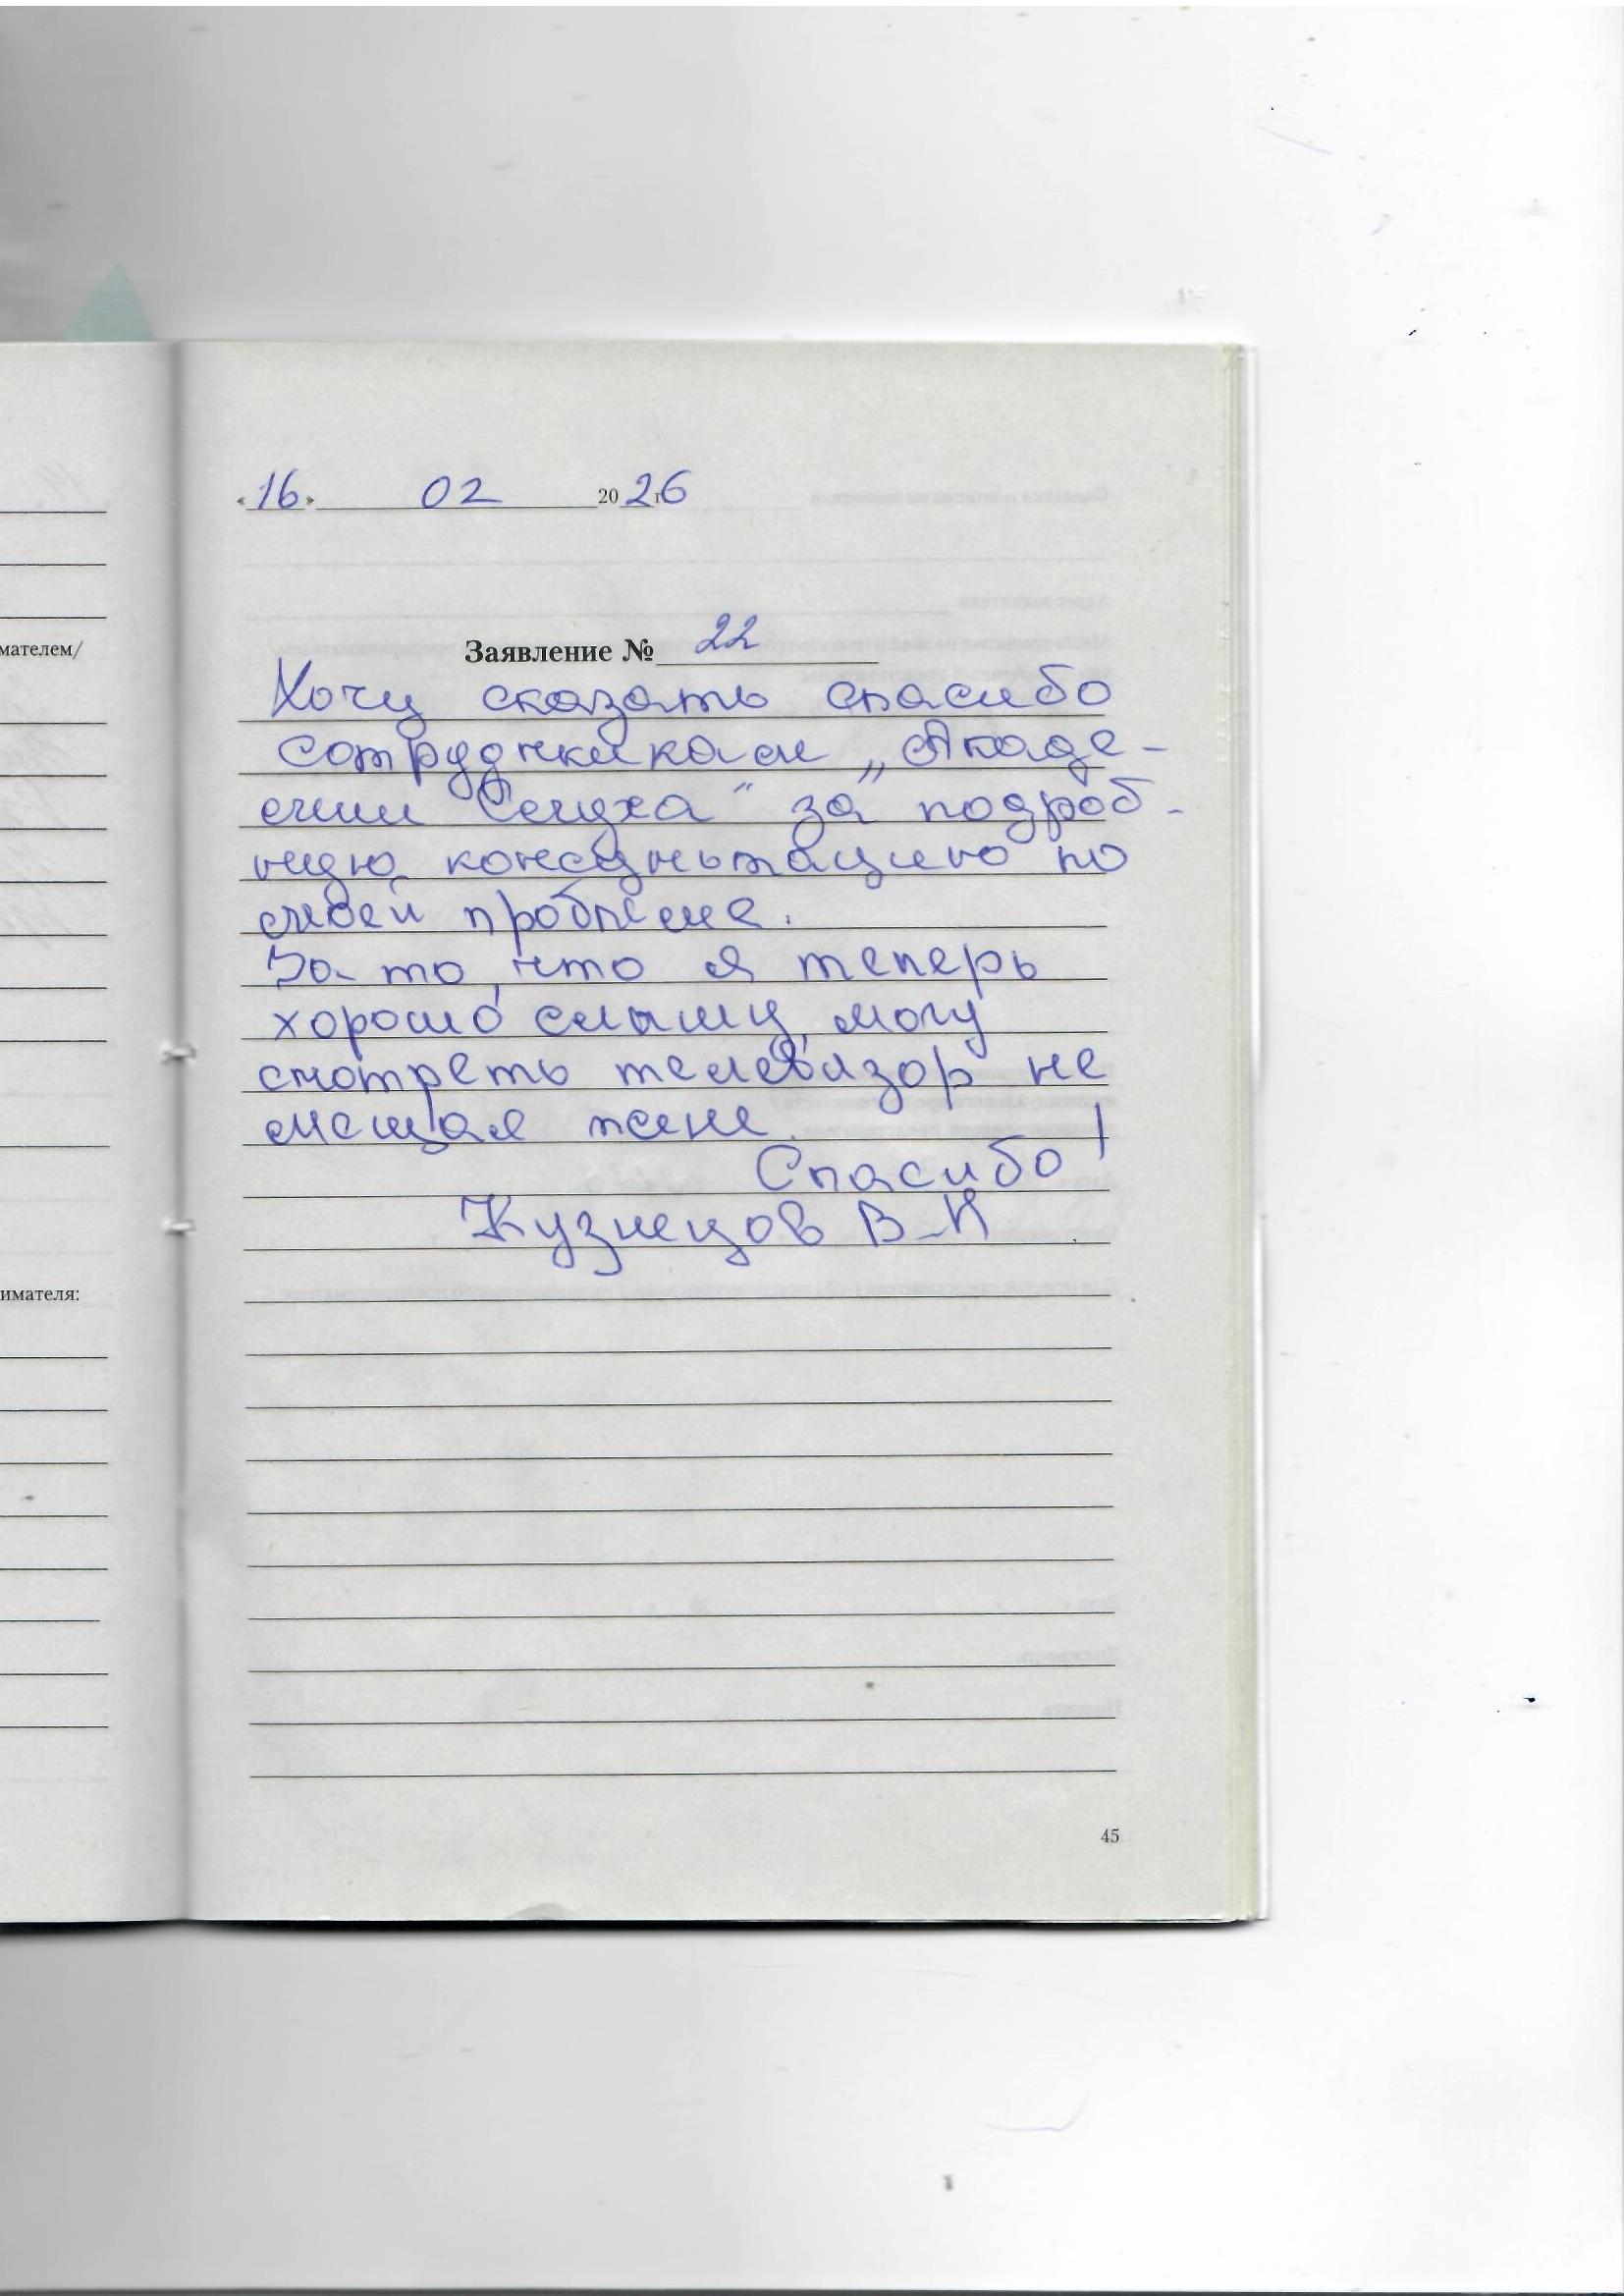 «16» 02 2026 г
мателем/
Заявление № 22
Хочу сказать спасибо
сотрудникам „Акаде-
мии Слуха" за подроб-
ную консультацию по
моей проблеме.
За то, что я теперь
хорошо слышу, могу
смотреть телевизор не
мешая жене.
Спасибо!
Кузнецов В.И
имателя:
45